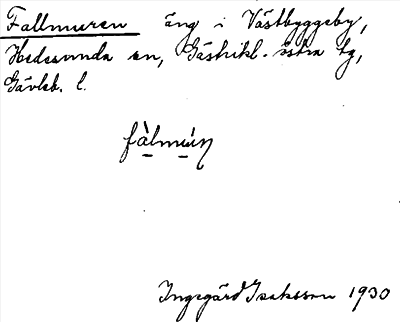 Fallmuren äng i Västbyggeby,
Hedesunda sn, Gästrikl. östra tg,
Gävleb. l.
fàlmúṇ
Ingegärd Isaksson 1930